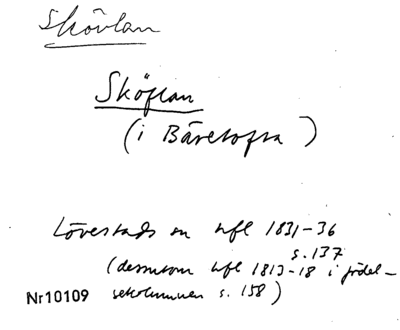 Skövlan
Sköflan
(i Bäretofta)
Lövestads sn hfl 1831-36
s. 137
(dessutom hfl 1813-18 i födel-
Nr 10109 sekolumnen s. 158)